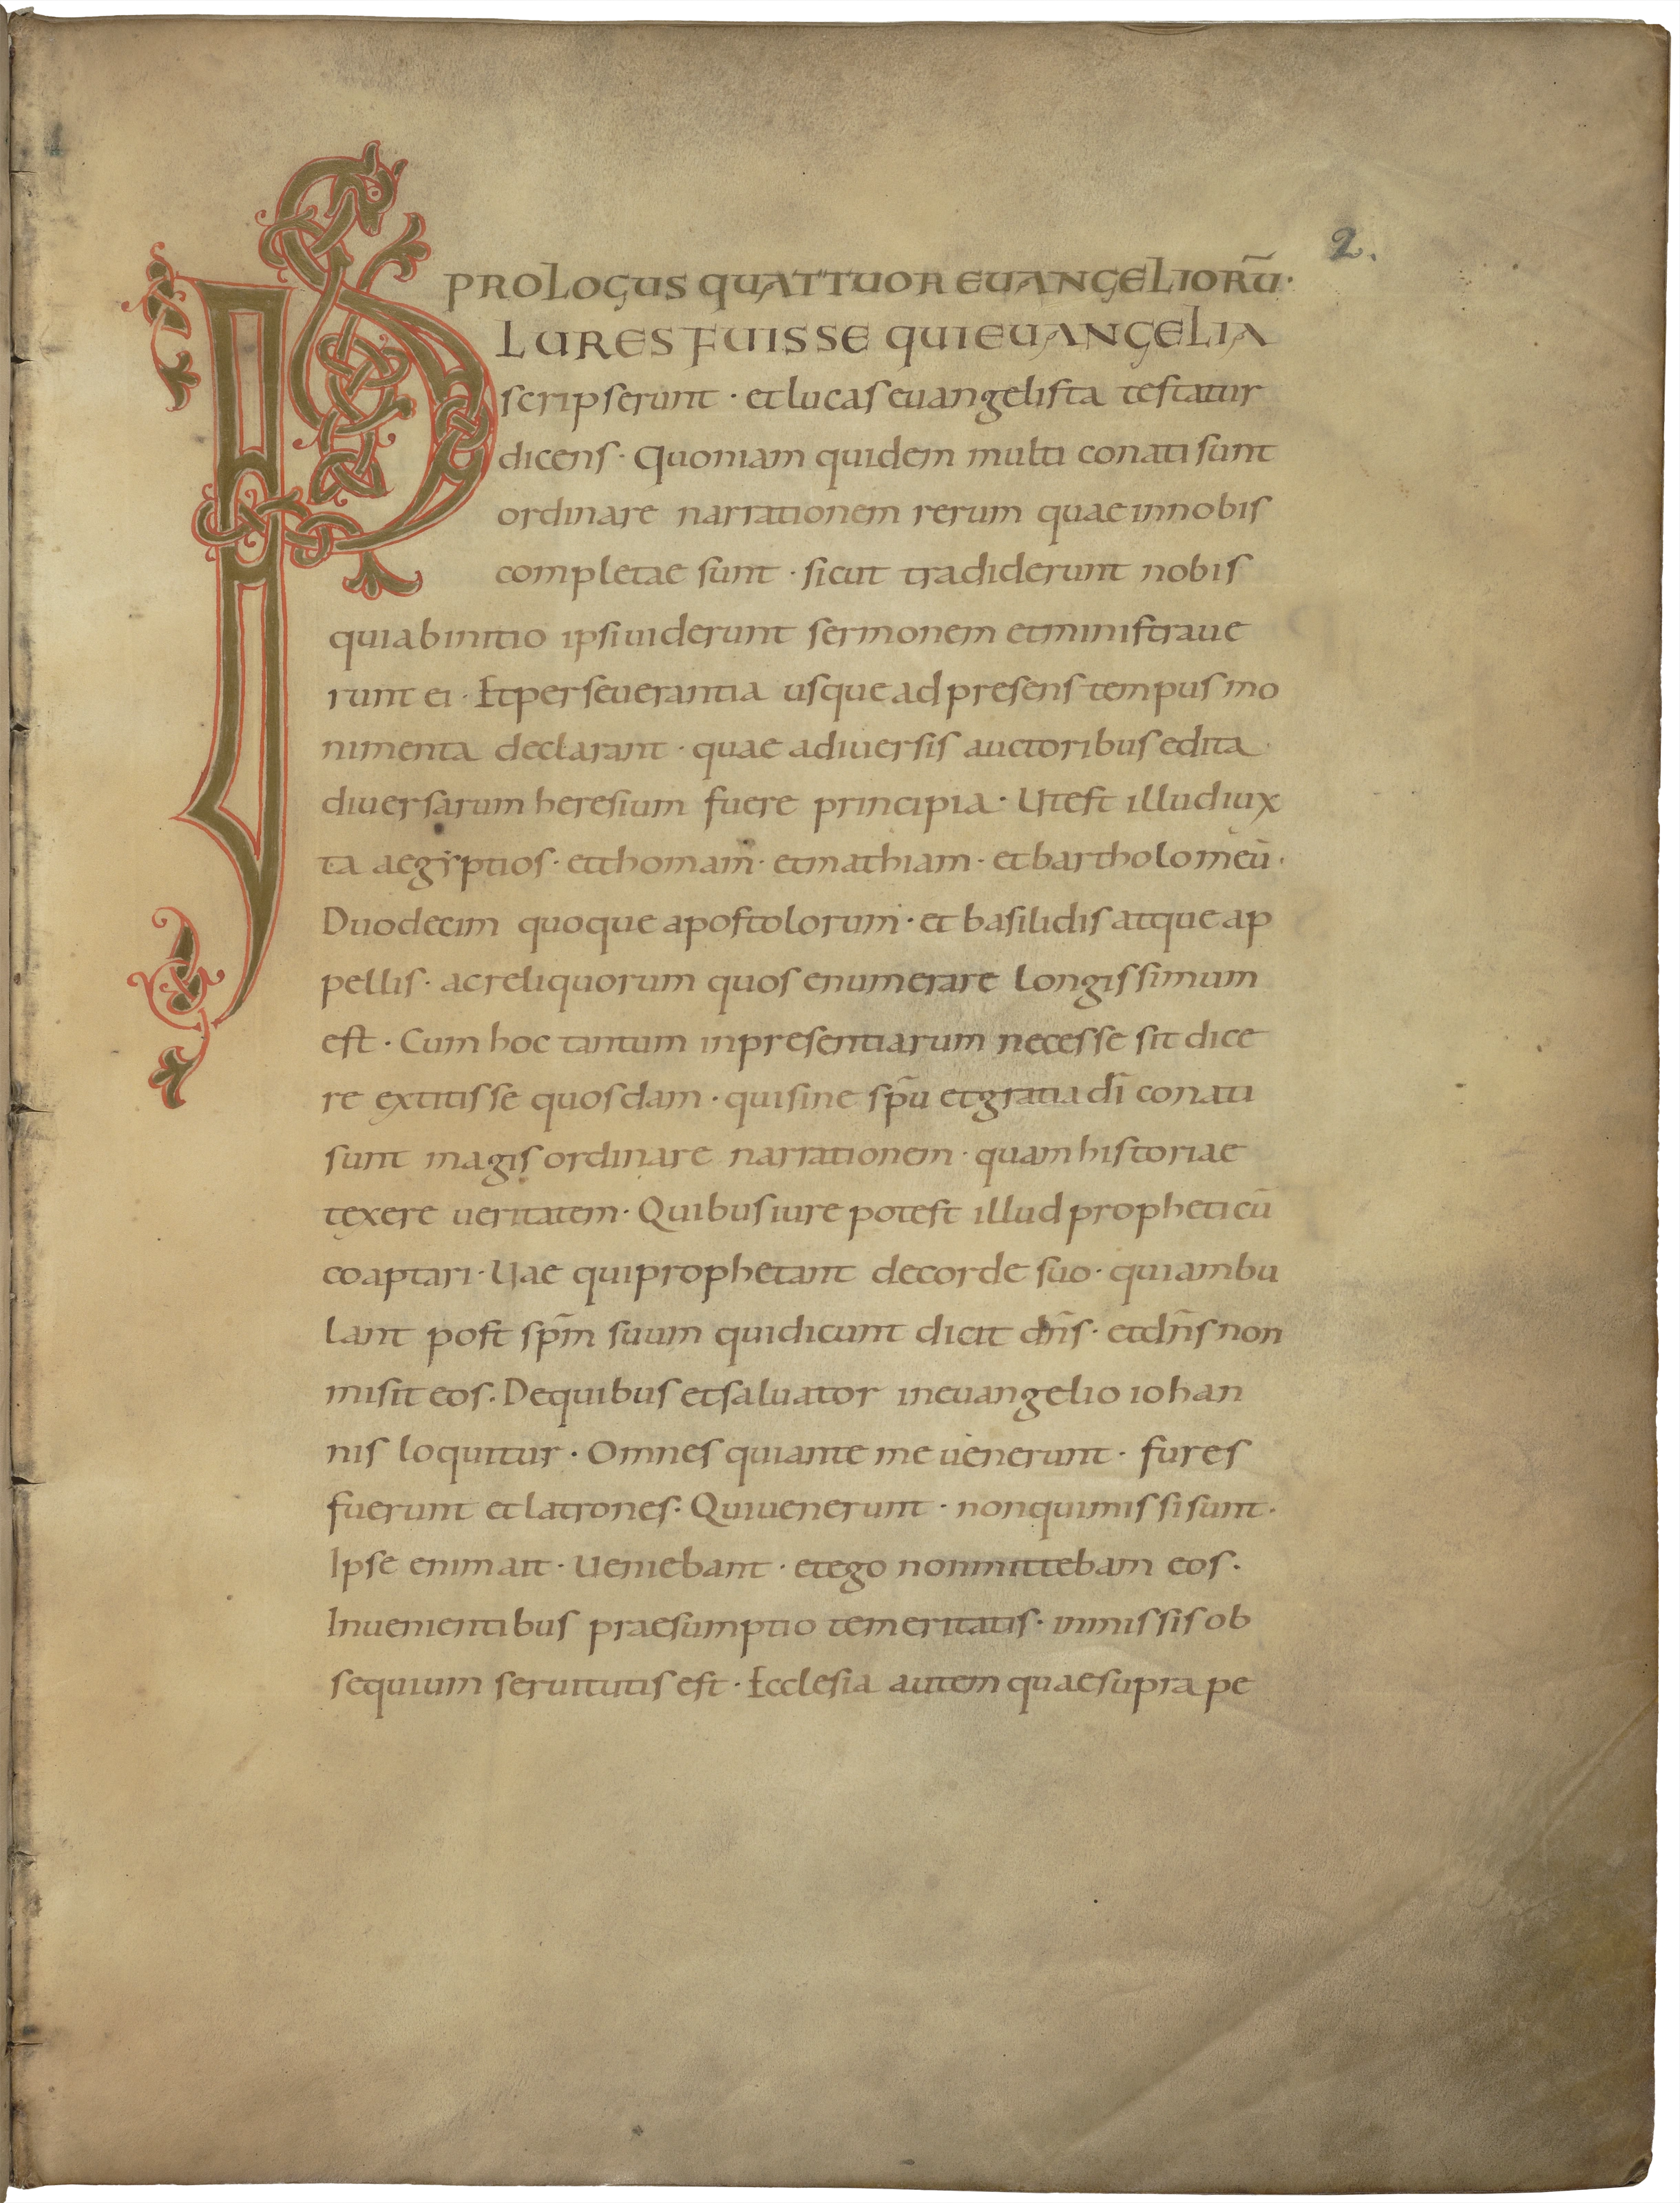 2.
PROLOGUS QUATTUOR EUANGELIORŪ·
PLURES FUISSE QUI EUANGELIA
scripserunt · et lucas euangelista testatur
dicens · Quoniam quidem multi conati sunt
ordinare narrationem rerum quae in nobis
completae sunt · sicut tradiderunt nobis
qui ab initio ipsi uiderunt sermonem et ministraue
runt ei · Et perseuerantia usque ad presens tempus mo
nimenta declarant · quae a diuersis auctoribus edita
diuersarum heresium fuere principia · Ut est illud iux
ta aegyptios · et thomam · et mathiam · et bartholomeū ·
Duodecim quoque apostolorum · et basilidis atque ap
pellis · ac reliquorum quos enumerare longissimum
est · Cum hoc tantum in presentiarum necesse sit dice
re extitisse quosdam · qui sine sp̄u et gratia dī conati
sunt magis ordinare narrationem · quam historiae
texere ueritatem · Quibus iure potest illud propheticū
coaptari · Uae qui prophetant de corde suo · qui ambu
lant post sp̄m suum qui dicunt dicit dn̄s · et dn̄s non
misit eos · De quibus et saluator in euangelio iohan
nis loquitur · Omnes qui ante me uenerunt · fures
fuerunt et latrones · Qui uenerunt · non qui missi sunt ·
Ipse enim ait · Ueniebant · et ego non mittebam eos ·
In uenientibus praesumptio temeritatis · in missis ob
sequium seruitutis est · Ecclesia autem quae supra pe